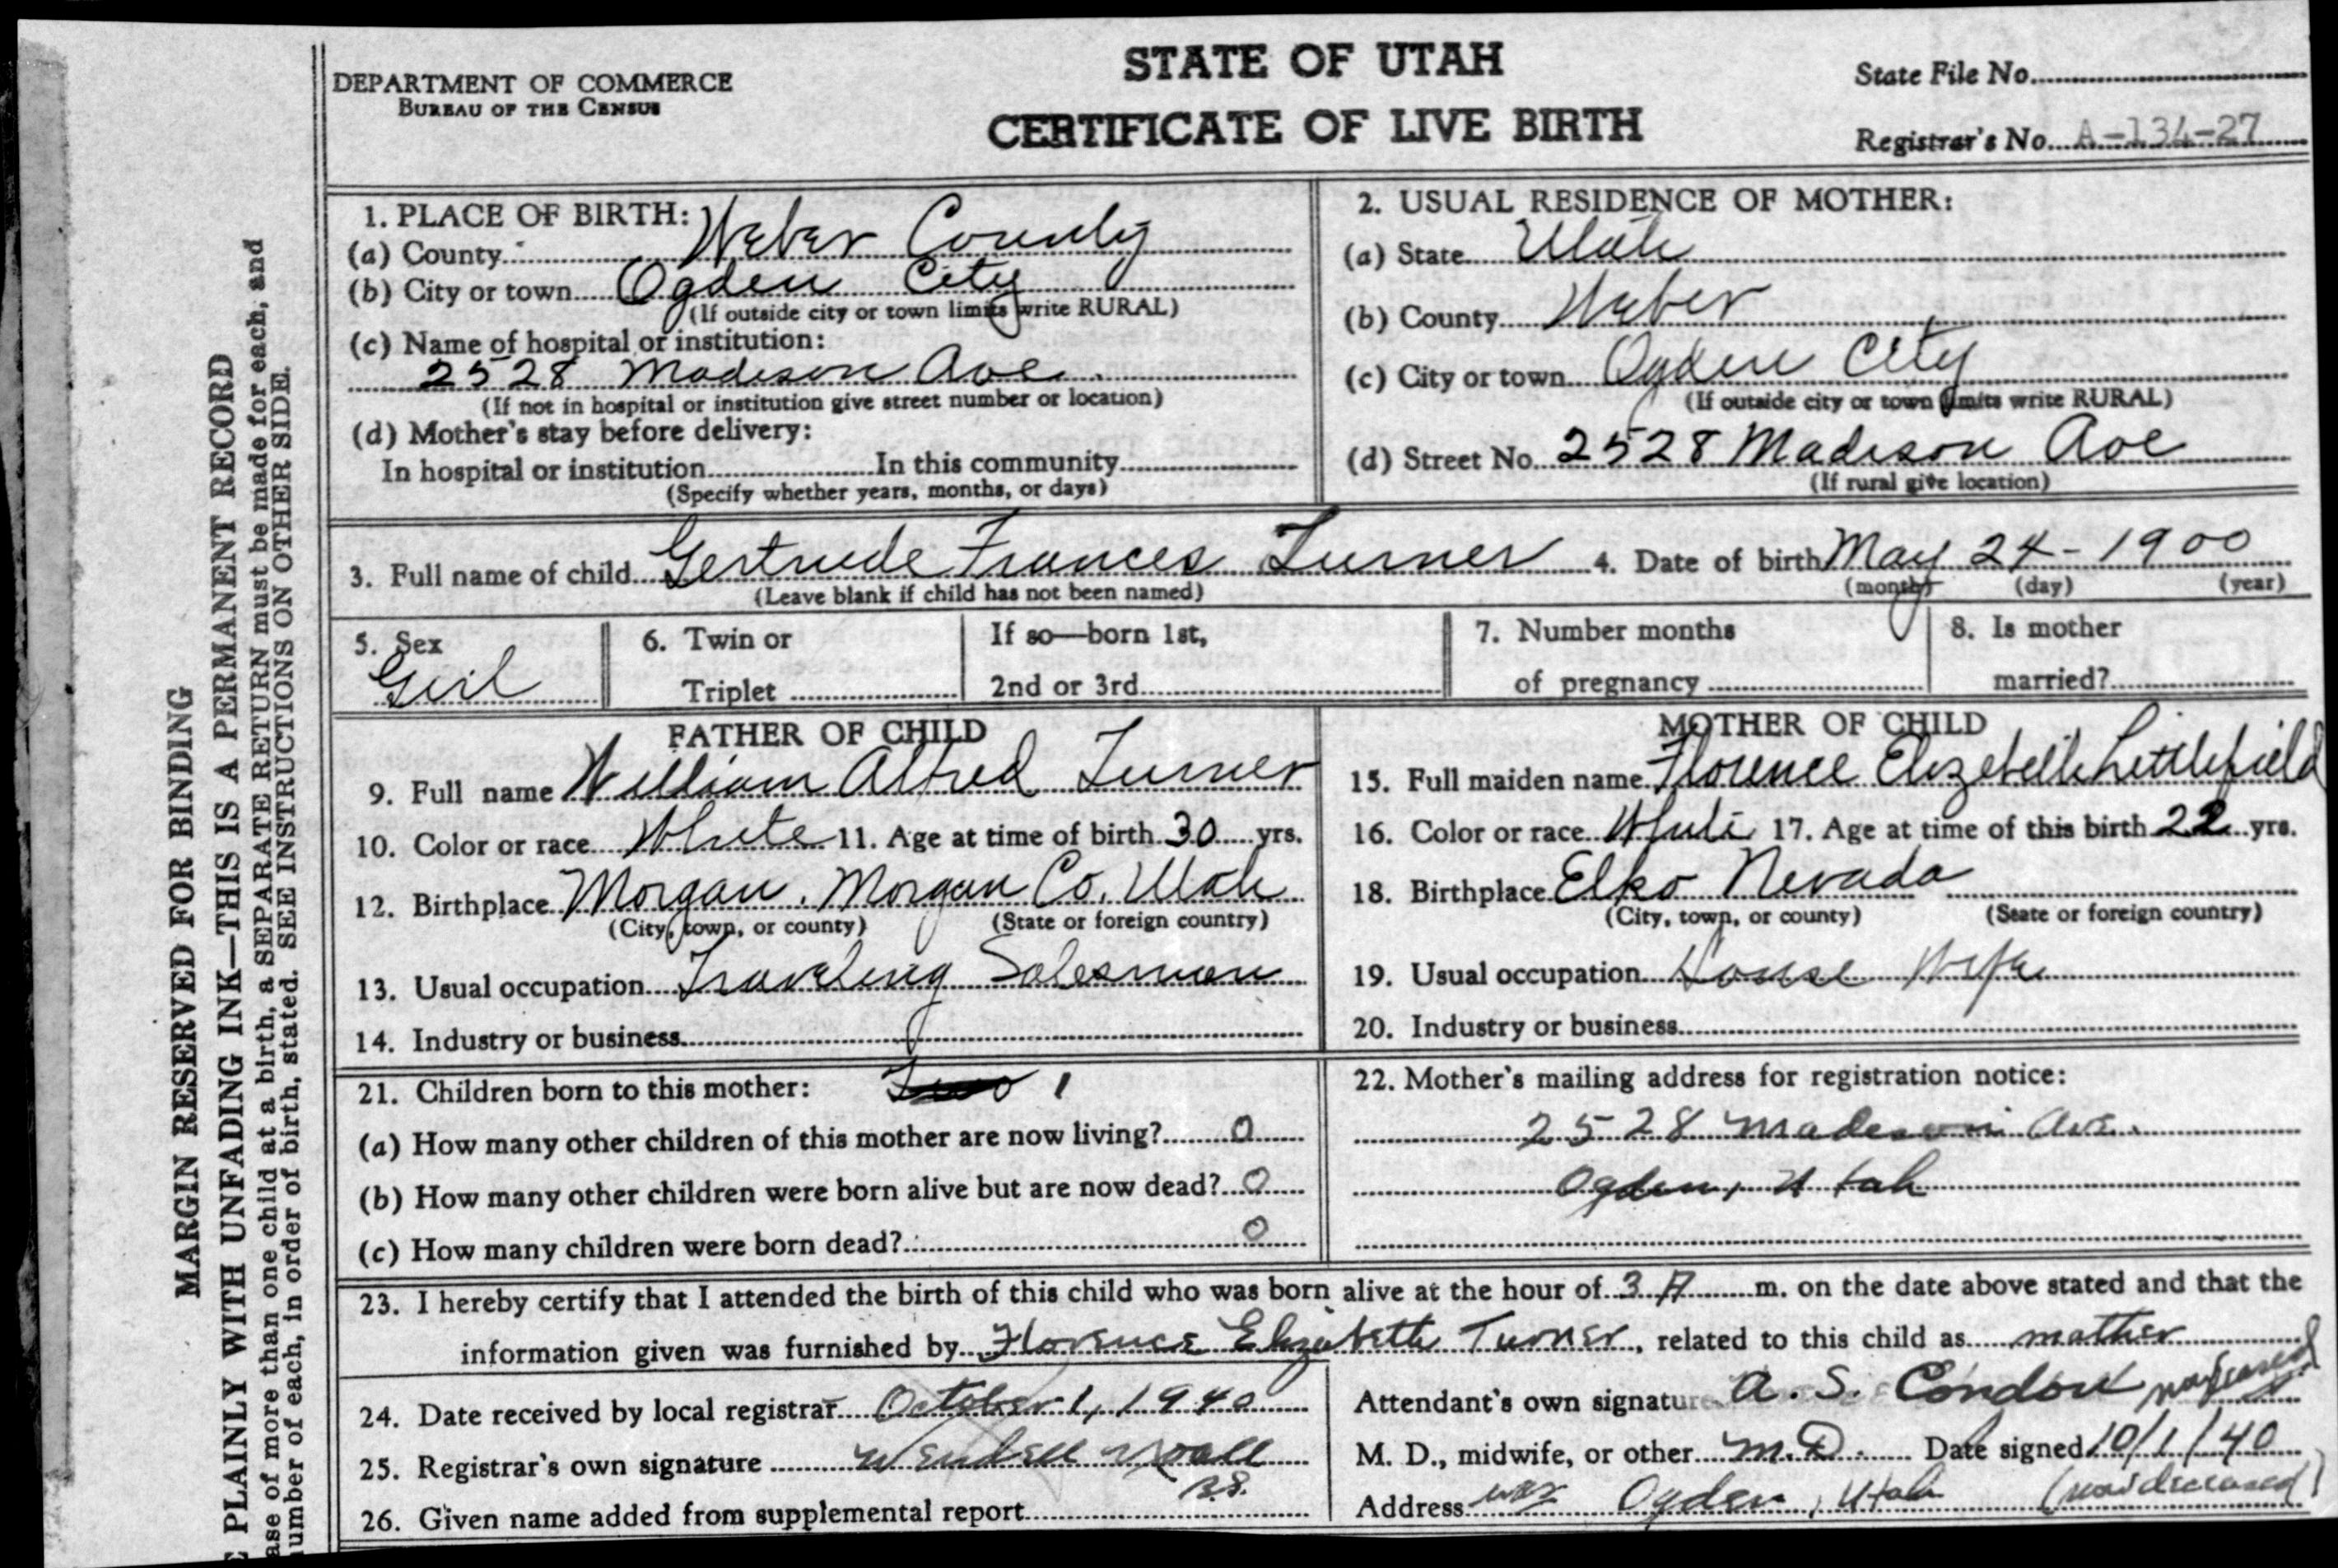 DEPARTMENT OF COMMERCE
BUREAU OF THE CENSUS
STATE OF UTAH
CERTIFICATE OF LIVE BIRTH
State File No.
Registrar's No. A-134-27
MARGIN RESERVED FOR BINDING
PLAINLY WITH UNFADING INK—THIS IS A PERMANENT RECORD
ase of more than one child at a birth, a SEPARATE RETURN must be made for each, and
umber of each, in order of birth, stated. SEE INSTRUCTIONS ON OTHER SIDE.
1. PLACE OF BIRTH:
(a) County Weber County
(b) City or town Ogden City
(If outside city or town limits write RURAL)
(c) Name of hospital or institution:
2528 Madison Ave.
(If not in hospital or institution give street number or location)
(d) Mother's stay before delivery:
In hospital or institution In this community
(Specify whether years, months, or days)
2. USUAL RESIDENCE OF MOTHER:
(a) State Utah
(b) County Weber
(c) City or town Ogden City
(If outside city or town limits write RURAL)
(d) Street No. 2528 Madison Ave
(If rural give location)
3. Full name of child Gertrude Frances Turner 4. Date of birth May 24-1900
(Leave blank if child has not been named) (month) (day) (year)
5. Sex Girl
6. Twin or
Triplet
If so—born 1st,
2nd or 3rd
7. Number months
of pregnancy
8. Is mother
married?
FATHER OF CHILD
9. Full name William Alfred Turner
10. Color or race White 11. Age at time of birth 30 yrs.
12. Birthplace Morgan, Morgan Co. Utah
(City, town, or county) (State or foreign country)
13. Usual occupation Traveling Salesman
14. Industry or business
MOTHER OF CHILD
15. Full maiden name Florence Elizebeth Littlefield
16. Color or race White 17. Age at time of this birth 22 yrs.
18. Birthplace Elko Nevada
(City, town, or county) (State or foreign country)
19. Usual occupation House Wife
20. Industry or business
21. Children born to this mother: Two 1
(a) How many other children of this mother are now living? 0
(b) How many other children were born alive but are now dead? 0
(c) How many children were born dead? 0
22. Mother's mailing address for registration notice:
2528 Madison Ave.
Ogden, Utah
23. I hereby certify that I attended the birth of this child who was born alive at the hour of 3 A m. on the date above stated and that the
information given was furnished by Florence Elizabeth Turner, related to this child as mother
24. Date received by local registrar October 1, 1940
25. Registrar's own signature Wendell
26. Given name added from supplemental report
Attendant's own signature A. S. Condon
M. D., midwife, or other M.D. Date signed 10/1/40
Address was Ogden, Utah (now deceased)